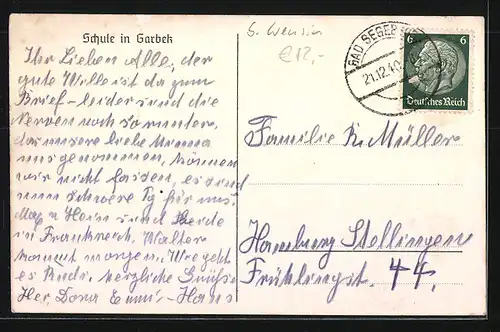 Schule in Garbek
Ihr Lieben Alle, der
gute Wille ist da zum
Brief - leider sind die
Nerven noch so runter,
das unsere liebe Mama
uns genommen, können
wir nicht fassen, es sind
nun schwere Tg für uns.
Max u Hein sind beide
in Frankreich. Walter
kommt morgen. Wie geht
es Rudi. herzliche Grüße
Her. Dora Emmi - Hans
€12,-
BAD SEGEBERG
21.12.40
6 6
Deutsches Reich
Familie R. Müller
Hamburg Stellingen
Frühlingst. 44.